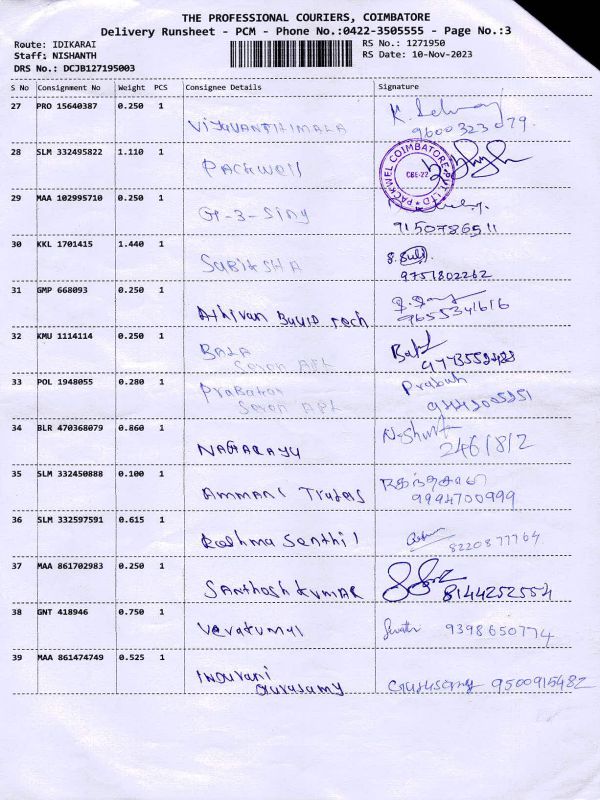 THE PROFESSIONAL COURIERS, COIMBATORE
Delivery Runsheet - PCM - Phone No.:0422-3505555 - Page No.:3
Route: IDIKARAI RS No.: 1271950
Staff: NISHANTH RS Date: 10-Nov-2023
DRS No.: DCJB127195003
S No Consignment No Weight PCS Consignee Details Signature
27 PRO 15640387 0.250 1
VIJUVANTHIMALA
9600323079.
28 SLM 332495822 1.110 1
Packwell
PACKWEL COIMBATORE PVT LTD
CBE-22
29 MAA 102995710 0.250 1
G-3-Sidy
9150786511
30 KKL 1701415 1.440 1
SUBIKSHA
9751802262
31 GMP 668093 0.250 1
Athivan Build Tech
9655341616
32 KMU 1114114 0.250 1
BALA
33 POL 1948055 0.280 1
Prabakar
Prabuh
34 BLR 470368079 0.860 1
NAGARAJU
246/8/2
35 SLM 332450888 0.100 1
Ammani Traders
9994700999
36 SLM 332597591 0.615 1
Reshma Senthil
8220877764
37 MAA 861702983 0.250 1
SANTHOSH KUMAR
8144252554
38 GNT 418946 0.750 1
Verakumal
Swathi 9398650774
39 MAA 861474749 0.525 1
INDURANI
Gurusamy
9500915482